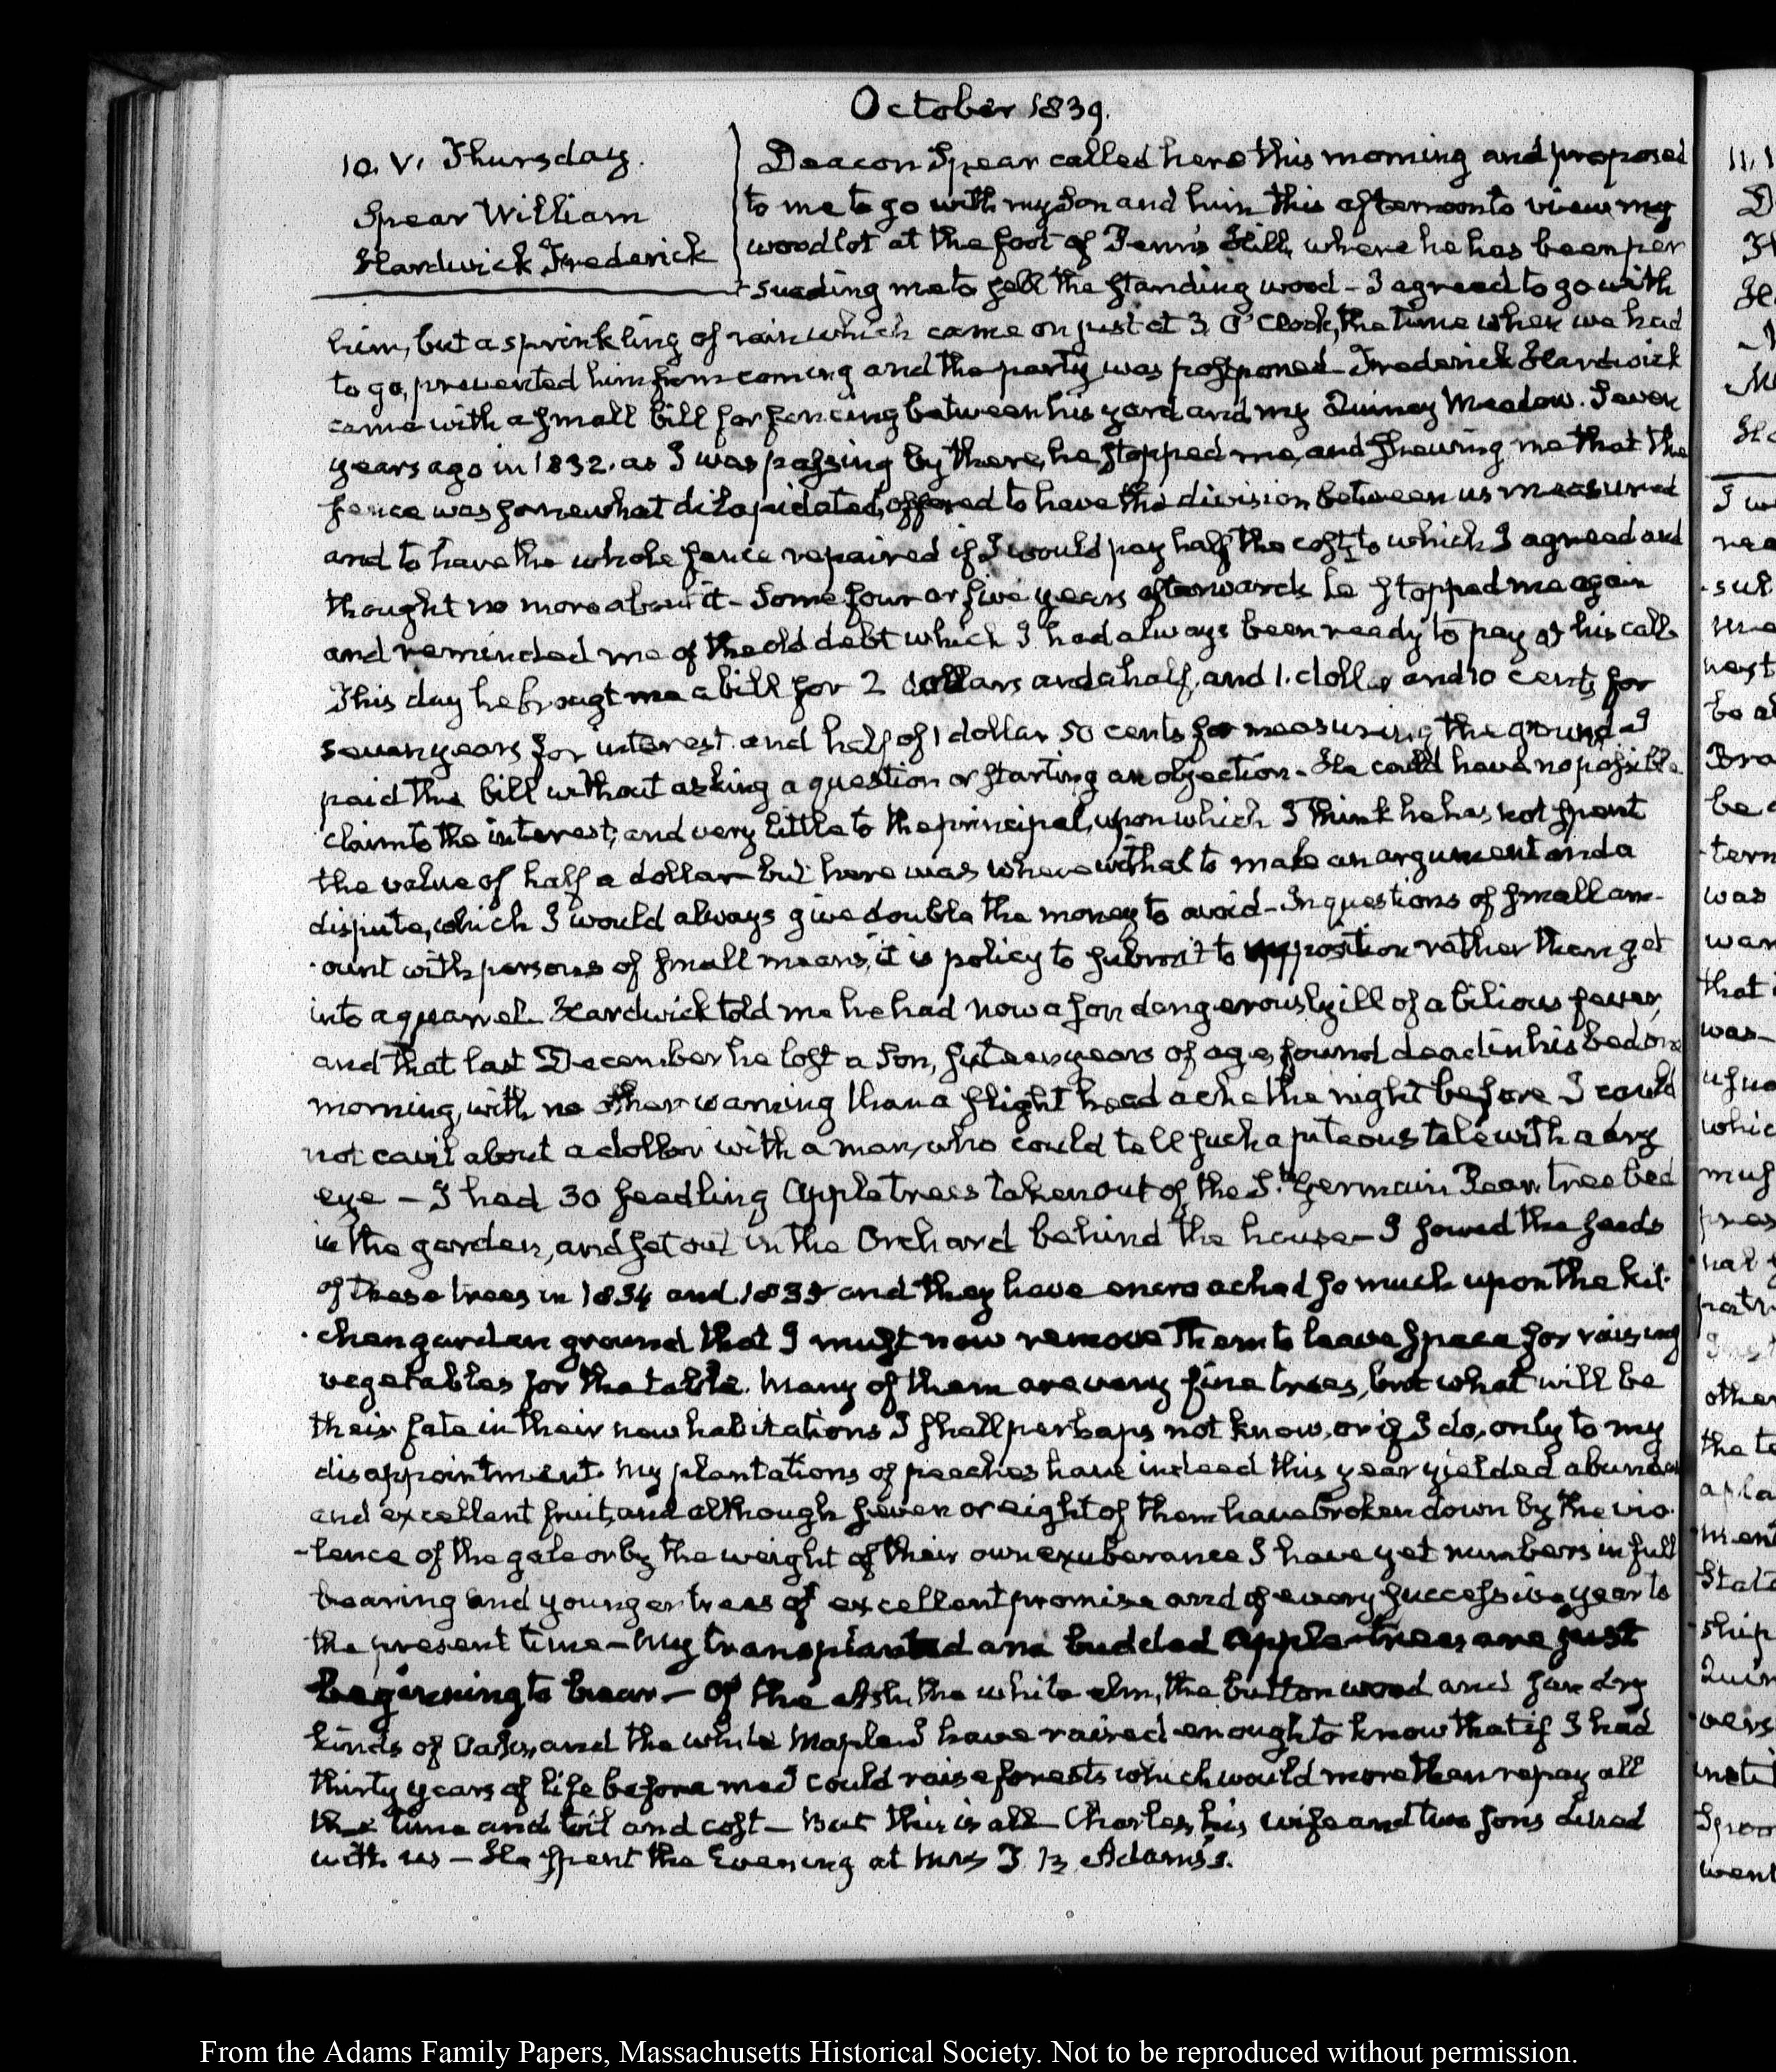 October 1839.
10. V. Thursday.
Spear William
Hardwick Frederick
Deacon Spear called here this morning and proposed
to me to go with my Son and him this afternoon to view my
wood lot at the foot of Penn's Hill, where he has been per
-suading me to sell the standing wood - I agreed to go with
him, but a sprinkling of rain which came on just at 3 O'Clock, the time when we had
to go, prevented him from coming and the party was postponed - Frederick Hardwick
came with a small bill for fencing between his yard and my Quincy Meadow. Seven
years ago in 1832. as I was passing by there, he stopped me, and shewing me that the
fence was somewhat dilapidated, offered to have the division between us measured
and to have the whole fence repaired if I would pay half the cost, to which I agreed and
thought no more about it - Some four or five years afterwards he stopped me again
and reminded me of the old debt which I had always been ready to pay at his call.
This day he brougt me a bill for 2 dollars and a half, and 1. dollar and 10 cents for
seven years for interest. and half of 1 dollar 50 cents for measuring the ground - I
paid the bill without asking a question or starting an objection - He could have no possible
claim to the interest, and very little to the principal, upon which I think he has not spent
the value of half a dollar - but here was wherewithal to make an argument and a
dispute, which I would always give double the money to avoid - In questions of small am-
-ount with persons of small means, it is policy to submit to imposition rather than get
into a quarrel. Hardwick told me he had now a son dangerously ill of a bilious fever,
and that last December he lost a Son, fifteen years of age, found dead in his bed one
morning, with no other warning than a slight head ache the night before I could
not cavil about a dollar with a man, who could tell such a piteous tale with a dry
eye - I had 30 seedling Apple trees taken out of the St. Germain Pear tree bed
in the garden, and set out in the Orchard behind the house - I sowed the seeds
of these trees in 1834 and 1835 and they have encroached so much upon the kit-
-chen garden ground that I must now remove them to leave space for raising
vegetables for the table. Many of them are very fine trees, but what will be
their fate in their new habitations I shall perhaps not know, or if I do, only to my
disappointment. My plantations of peaches have indeed this year yielded abundant
and excellent fruit, and although seven or eight of them have broken down by the vio-
-lence of the gale or by the weight of their own exuberance I have yet numbers in full
bearing and younger trees of excellent promise and of every successive year to
the present time - My transplanted and budded Apple-trees are just
beginning to bear - Of the Ash, the white elm, the buttonwood and sundry
kinds of Oaks, and the white Maple I have raised enough to know that if I had
thirty years of life before me I could raise forests which would more than repay all
the time and toil and cost - But this is all - Charles, his wife and two sons dined
with us - He spent the Evening at Mrs T. B. Adams's.
From the Adams Family Papers, Massachusetts Historical Society. Not to be reproduced without permission.